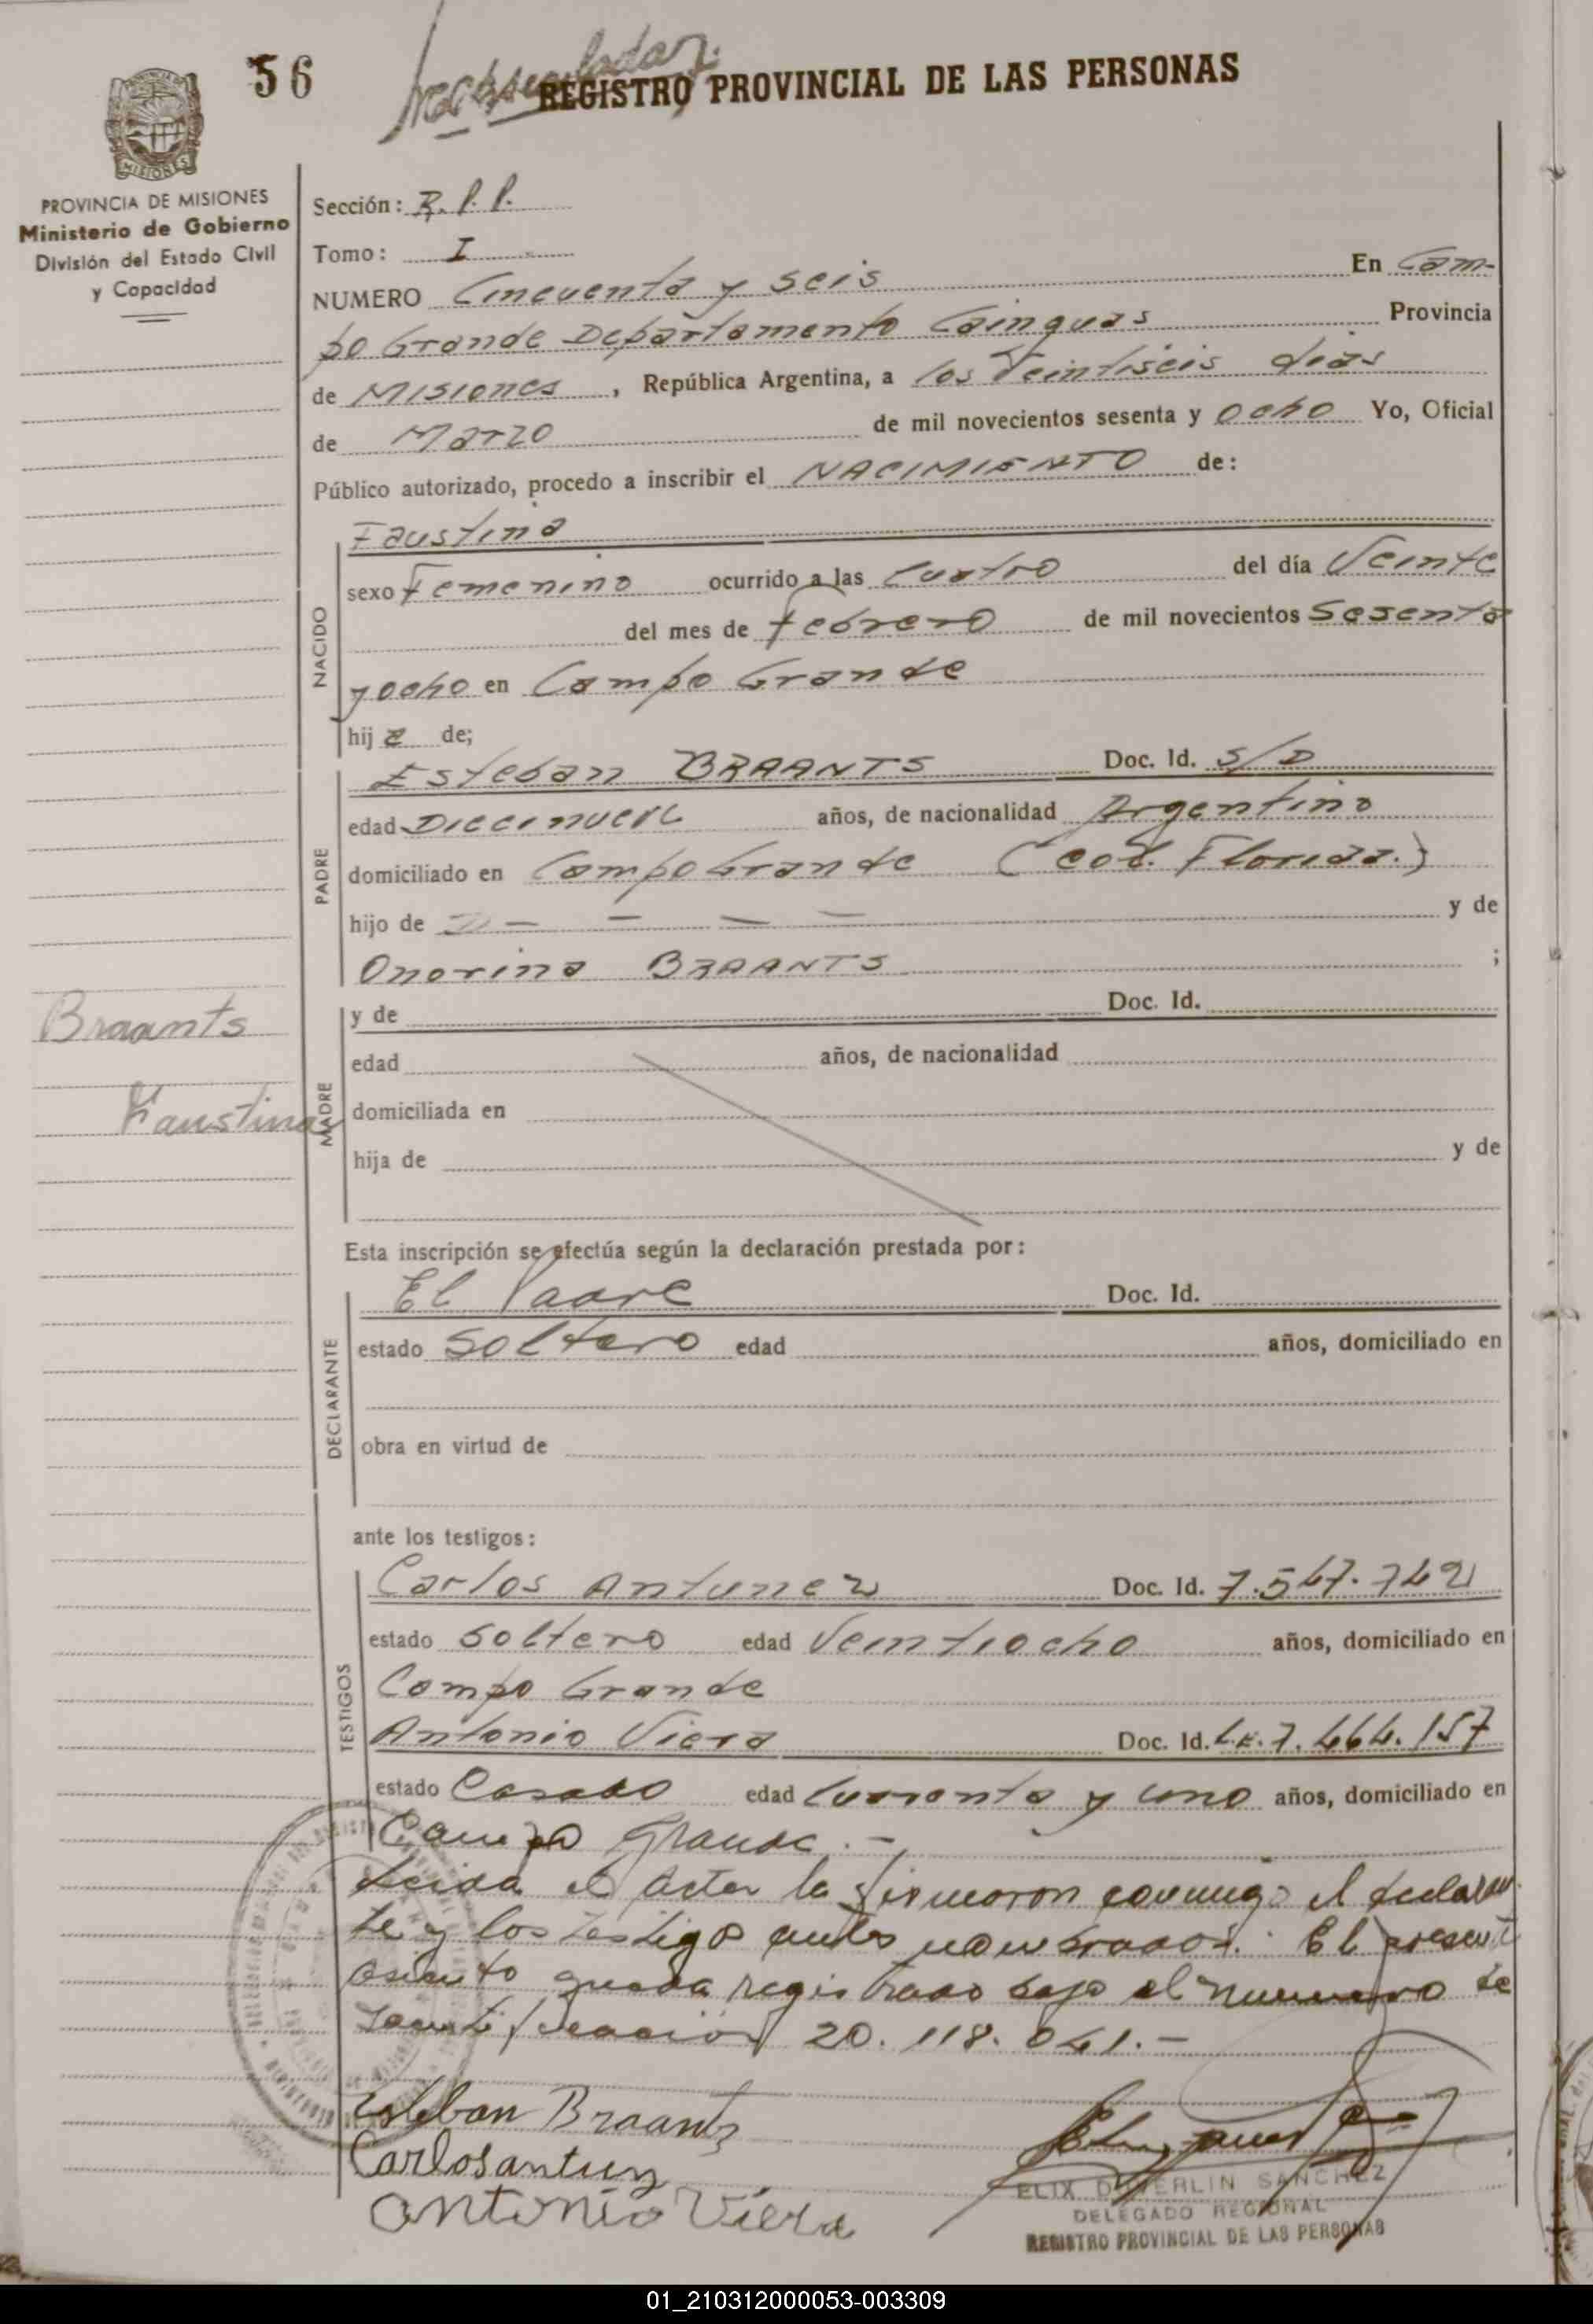 56
REGISTRO PROVINCIAL DE LAS PERSONAS
MISIONES
PROVINCIA DE MISIONES
Ministerio de Gobierno
División del Estado Civil
y Capacidad
Sección: R. P. P.
Tomo: I
NUMERO Cincuenta y seis En Cam-
po Grande Departamento Cainguas Provincia
de Misiones, República Argentina, a los Veintiseis dias
de Marzo de mil novecientos sesenta y ocho Yo, Oficial
Público autorizado, procedo a inscribir el NACIMIENTO de:
NACIDO
Faustina
sexo Femenino ocurrido a las Cuatro del día Veinte
del mes de febrero de mil novecientos Sesenta
y ocho en Campo Grande
hija de;
PADRE
Esteban BRAANTS Doc. Id. S/D
edad Diecinueve años, de nacionalidad Argentino
domiciliado en Campo Grande (col. Florida.)
hijo de — — — — y de
Onorina BRAANTS ;
Braants
Faustina
MADRE
y de Doc. Id.
edad años, de nacionalidad
domiciliada en
hija de y de
Esta inscripción se efectúa según la declaración prestada por:
DECLARANTE
El Padre Doc. Id.
estado Soltero edad años, domiciliado en
obra en virtud de
ante los testigos:
TESTIGOS
Carlos Antunez Doc. Id. 7.547.742
estado Soltero edad Veintiocho años, domiciliado en
Campo Grande
Antonio Viera Doc. Id. L.E. 7.464.157
estado Casado edad Cuarenta y uno años, domiciliado en
Campo Grande.-
Leida el Acta la firmaron conmigo el declaran
te y los testigo antes nombrados. El present
asiento queda registrado bajo el numero de
Identificación 20.118.041.-
Esteban Braants
Carlos antunez
Antonio Viera
SANCHEZ
DELEGADO REGIONAL
REGISTRO PROVINCIAL DE LAS PERSONAS
01_210312000053-003309